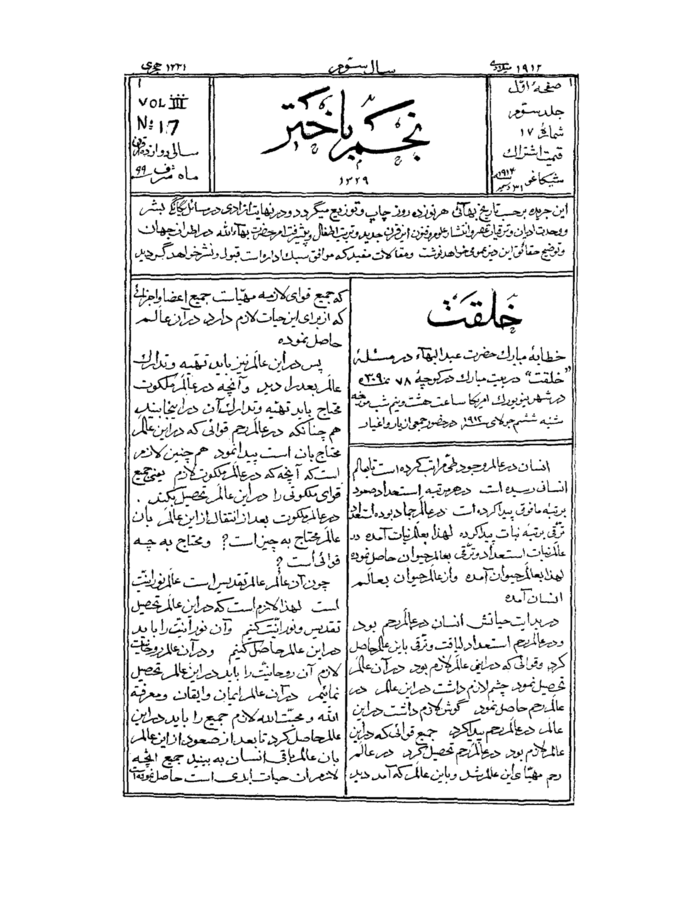 ۱۹۱۲ میلادی
سال سوّم
۱۳۳۱ هجری
صفحهٔ اوّل
جلد ستوم
شمارهٔ ۱۷
قیمت اشتراک
شیکاغو
نجم باختر
۱۳۲۹
VOL III
No 17
سالی دوازده قران
ماه شرف ۶۹
این جریده برحسب تاریخ بهائی هر نوزده روز چاپ و توزیع میگردد و در نهایت آزادی در مسائل یگانگی بشر
و وحدت ادیان و ترقیات عصر و انتشار علوم و فنون این قرن جدید و تربیت اطفال و پیشرفت امر حضرت بهاءالله در اطراف جهان
و توضیح حقائق این دین عمومی خواهد نوشت و مقالات مفیده که موافق سبک اداره است قبول و نشر خواهد گردید
خلقت
خطابهٔ مبارک حضرت عبدالبهآء در مسئلهٔ
"خلقت" در بیت مبارک در کوچهٔ ۷۸ ن ۳۰۹
در شهر نیویورک امریکا ساعت هشت و نیم شب مورخه
شنبه ششم جولای ۱۹۱۲ در حضور جمعی از یار و اغیار
انسان در عالم وجود طیّ مراتب کرده است تا بعالم
انسانی رسیده است در هر مرتبه استعداد صعود
برتبه مافوق پیدا کرده است در عالم جماد بوده استعداد
ترقی برتبهٔ نبات پیدا کرده لهذا بعالم نبات آمده در
عالم نبات استعداد و ترقی بعالم حیوان حاصل نموده
لهذا بعالم حیوان آمده و از عالم حیوان بعالم
انسان آمده
در بدایت حیاتش انسان در عالم رحم بود
و در عالم رحم استعداد لیاقت و ترقی باین عالم حاصل
کرد و قوائی که در این عالم لازم بود در آن عالم
تحصیل نمود چشم لازم داشت در این عالم در
عالم رحم حاصل نمود گوش لازم داشت در این
عالم در عالم رحم پیدا کرد جمیع قوائی که در این
عالم لازم بود در عالم رحم تحصیل کرد در عالم
رحم مهیّای این عالم شد و باین عالم که آمد دید
که جمیع قوای لازمه مهیّاست جمیع اعضا و اجزائی
که از برای این حیات لازم دارد در آن عالم
حاصل نموده
پس در این عالم نیز باید تهیّه و تدارک
عالم بعد را دید و آنچه در عالم ملکوت
محتاج باید تهیّه و تدارک آن در اینجا بیند
هم چنانکه در عالم رحم قوائی که در این عالم
محتاج بآن است پیدا نمود هم چنین لازم
است که آنچه که در عالم ملکوت لازم یعنی جمیع
قوای ملکوتی را در این عالم تحصیل بکند.
در عالم ملکوت بعد از انتقال از این عالم بآن
عالم محتاج به چیز است؟ و محتاج به چه
قوائی است؟
چون آن عالم عالم تقدیس است عالم نورانیّت
است لهذا لازم است که در این عالم تحصیل
تقدیس و نورانیّت کنیم و آن نورانیّت را باید
در این عالم حاصل کنیم و در آن عالم روحانیّت
لازم آن روحانیّت را باید در این عالم تحصیل
نمائیم در آن عالم ایمان و ایقان و معرفة
الله و محبّت الله لازم جمیع را باید در این
عالم حاصل کرد تا بعد از صعود از این عالم
بآن عالم باقی انسان به بیند جمیع آنچه
لازم آن حیات ابدی است حاصل نموده است